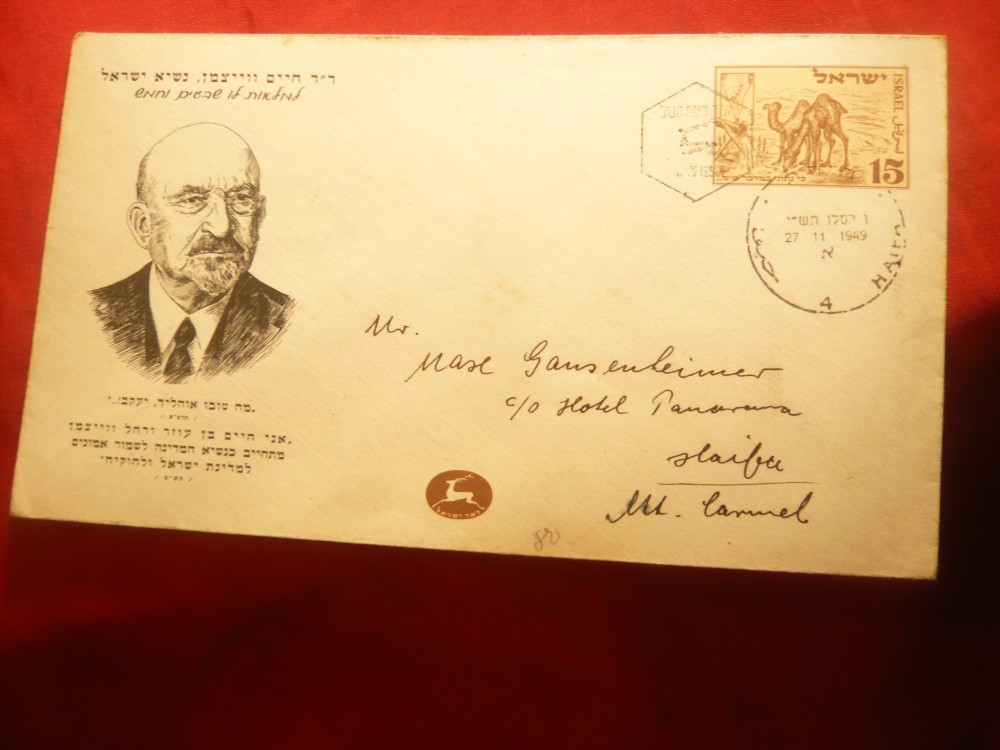 ד״ר חיים ווייצמן, נשיא ישראל
למלאות לו שבעים וחמש
ישראל
ISRAEL
15
ו׳ כסלו תש״י
27 11 1949
א
HAIFA
4
Mr.
Gansenheimer
c/o Hotel Panorama
Haifa
Mt. Carmel
„מה טובו אוהליך, יעקב!..״
„אני חיים בן עוזר ורחל ווייצמן
מתחייב כנשיא המדינה לשמור אמונים
למדינת ישראל ולחוקיה״
דאר ישראל
80